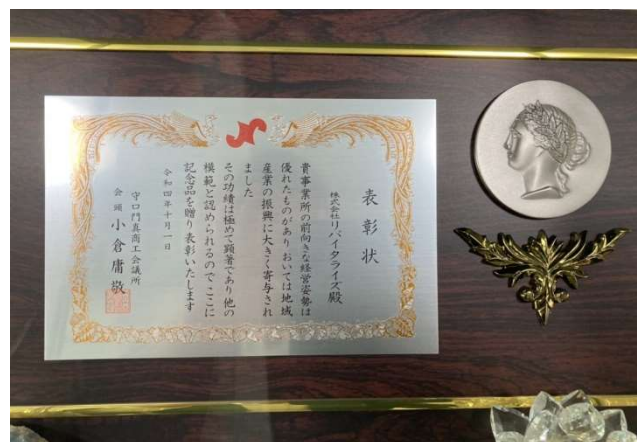 表彰状
株式会社リバイタライズ殿
貴事業所の前向きな経営姿勢は
優れたものがあり おいては地域
産業の振興に大きく寄与され
ました
その功績は極めて顕著であり他の
模範と認められるのでここに
記念品を贈り表彰いたします
令和四年十月一日
守口門真商工会議所
会頭 小倉庸敬